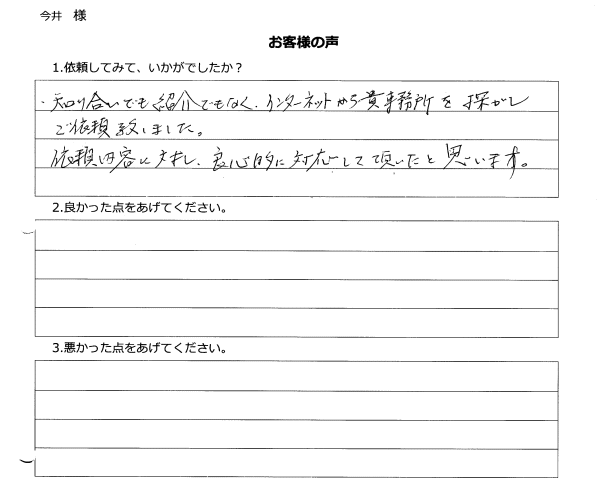 今井 様
お客様の声
1.依頼してみて、いかがでしたか？
・知り合いでも紹介でもなく、インターネットから貴事務所を探がし
ご依頼致しました。
依頼内容に対し、良心的に対応して頂いたと思います。
2.良かった点をあげてください。
3.悪かった点をあげてください。